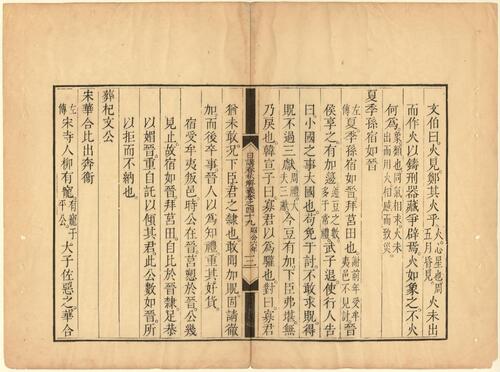 文伯曰火見鄭其火乎。火。心星也。周五月昏見。火未出
而作火以鑄刑器藏爭辟焉火如象之不火
何為。象類也。同氣相求。火未出而用火。相感而致災。
夏季孫宿如晉
左傳夏季孫宿如晉拜莒田也。謝前年受牟夷邑不見討。晉
侯享之有加籩。籩豆之數。多于常禮。武子退使行人告
曰小國之事大國也。苟免于討。不敢求貺得
貺不過三獻。周禮大夫三獻。今豆有加。下臣弗堪無
乃戾也。韓宣子曰寡君以為驩也對曰寡君
日講春秋解義 卷之四十九 昭公六年 三
猶未敢況下臣君之隸也敢聞加貺固請徹
加而後卒事晉人以為知禮重其好貨。
宿受牟夷叛邑。時公在晉。莒愬於晉。公幾
見止。故宿如晉。拜莒田。自比於晉隸。足恭
以媚晉。重自託以傾其君。此公數如晉。所
以拒而不納也。
葬杞文公
宋華合比出奔衛
左傳宋寺人柳有寵。有寵于平公。大子佐惡之。華合